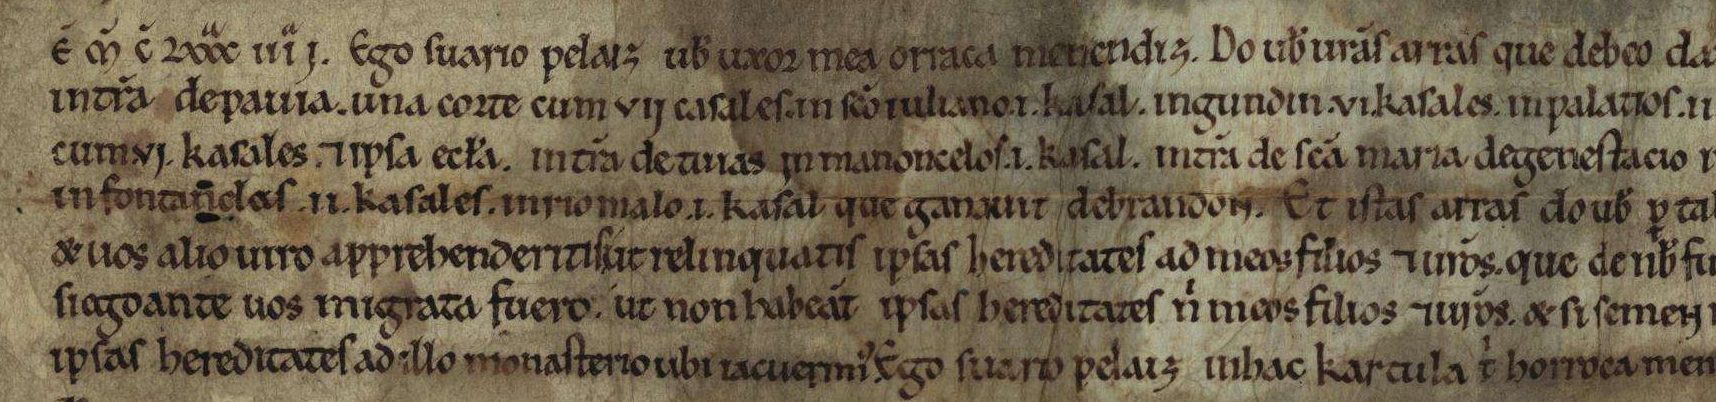 Ē M̄ C̄ LXXX IIII I. Ego suario pelaiz ub̄ uxor mea orraca menendiz. Do ub̄ urās arras que debeo da
in tr̄a de pauia. una corte cum VII casales. in sc̄o iuliano .I. kasal. in gundin .VI. kasales. in palatios .II
cum VI. kasales. ⁊ ipsa ecl̄a. in tr̄a de tuias in manoncelos .I. kasal. in tr̄a de sc̄a maria de genestacio
in fontan̄elas .II. kasales. in rio malo .I. kasal que ganauit de brandon. Et istas arras do ub̄ p̱ tal
& uos alio uiro apprehenderitis ut relinquatis ipsas hereditates ad meos filios ⁊ ur̄os. que de nb̄ fu
si ego ante uos migrata fuero. ut non habeāt ipsas hereditates n̄ meos filios ⁊ ur̄os. & si semen
ipsas hereditates ad illo monasterio ubi iacuerim⁹. Ego suario pelaiz in hac kartula t̄ horroca men